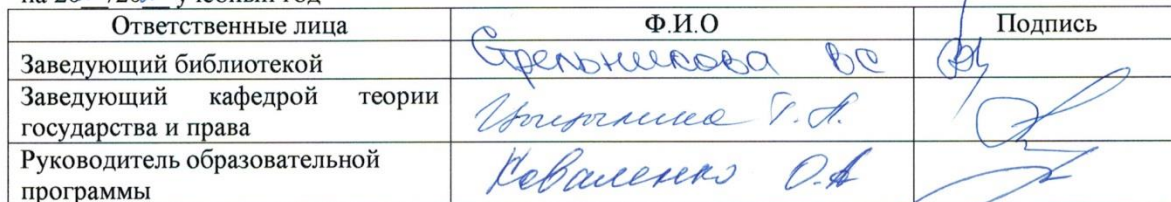 учебный год
Ответственные лица Ф.И.О Подпись
Заведующий библиотекой Стрельникова ВС
Заведующий кафедрой теории
государства и права Т.Н.
Руководитель образовательной Коваленко О.А
программы